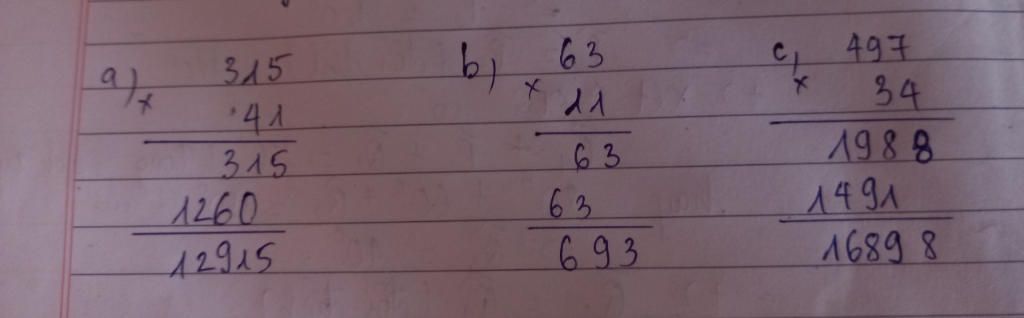 a) 315
x 41
315
1260
12915
b) 63
x 11
63
63
693
c, 497
x 34
1988
1491
16898